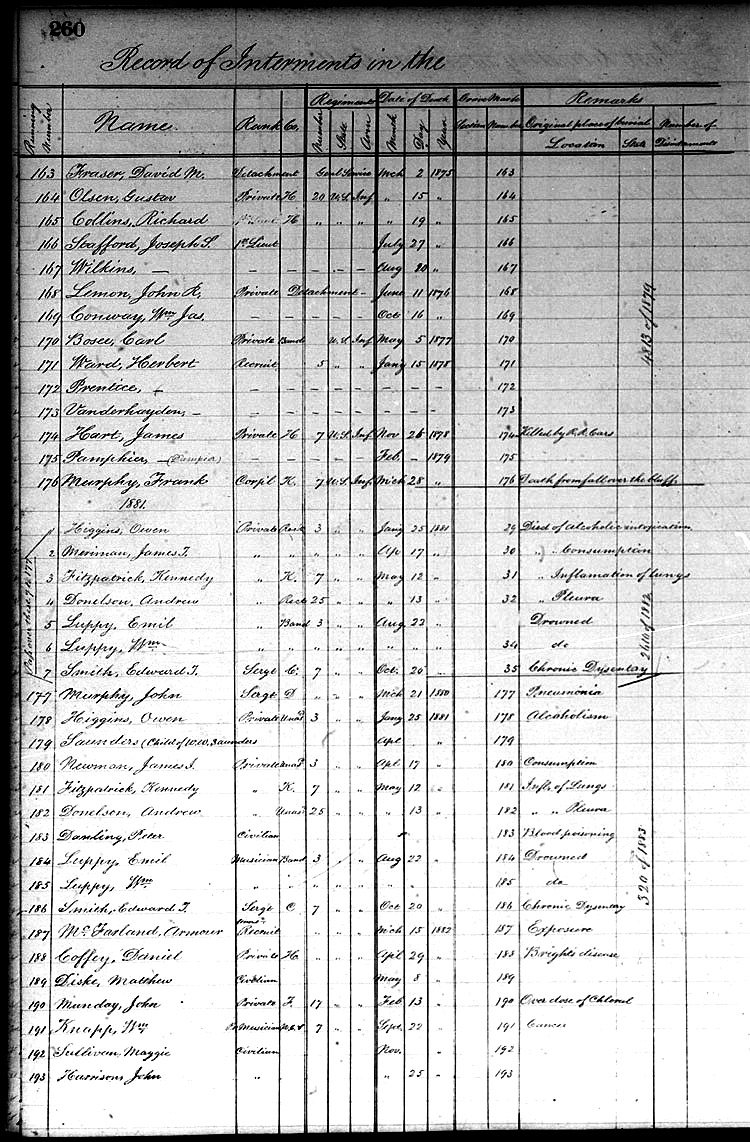 260
Record of Interments in the
Running Number Name. Rank Co. Regiment Date of Death Grave Marks Remarks
Number State Arm Month Day Year Section Number Original place of burial Number of
Location State Disinterments
163 Fraser, David M. Detachment Genl Service Mch 2 1875 163
164 Olsen, Gustav Private H 20 U.S. Inf " 15 " 164
165 Collins, Richard H " " " " 19 " 165
166 Stafford, Joseph S. 1st Lieut July 27 " 166
167 Wilkins, — — — — — — Aug 20 " 167
168 Lemon, John R. Private Detachment — June 11 1876 168
169 Conway, Wm Jas. — — — — — Oct 16 " 169
170 Bosee, Carl Private Band U.S. Inf May 5 1877 170
171 Ward, Herbert Recruit 5 " " Jany 15 1878 171
172 Prentice, — — — — — — — — — 172
173 Vanderhayden, — — — — — — — — — 173
174 Hart, James Private H 7 U.S. Inf Nov 26 1878 174 Killed by R.R. Cars
175 Pamphier, — (Pampier) Feb — 1879 175
176 Murphy, Frank Corpl K. 7 U.S. Inf Mch 28 " 176 Death from fall over the bluff
4813 of 1879
1881.
1 Higgins, Owen Private Recr 3 " " Jany 25 1881 29 Died of Alcoholic intoxication
2 Meriman, James T. " " " " " Ap 17 " 30 " " Consumption
3 Fitzpatrick, Kennedy " K. 7 " " May 12 " 31 " Inflamation of lungs
4 Donelson, Andrew " Recr 25 " " " 13 " 32 " Pleura
5 Luppy, Emil " Band 3 " " Aug 22 " Drowned
6 Luppy, Wm " " " " " " " " 34 do
7 Smith, Edward T. Sergt C. 7 " " Oct. 20 " 35 Chronic Dysentay
Pass over these 7 to 177
2616 of 1882
177 Murphy, John Sergt D " " " Mch 21 1880 177 Pneumonia
178 Higgins, Owen Private Unasd 3 " " Jany 25 1881 178 Alcoholism
179 Saunders (Child of W.W. Saunders Apl " 179
180 Newman, James T. Private Unasd 3 " " Apl 17 " 180 Consumption
181 Fitzpatrick, Kennedy " K. 7 " " May 12 " 181 Infl. of Lungs
182 Donelson, Andrew " Unasd 25 " " " 13 " 182 " " Pleura
183 Danling, Peter Civilian " 183 Blood poisoning
184 Luppy, Emil Musician Band 3 " " Aug 22 " 184 Drowned
185 Luppy, Wm " " " " " " " " 185 do
186 Smith, Edward T. Sergt C 7 " " Oct 20 " 186 Chronic Dysentay
187 McFarland, Armour Recruit " " " Mch 15 1882 187 Exposure
188 Coffey, Daniel Private H. " " " Apl 29 " 188 Brights disease
189 Diske, Matthew Civilian May 8 " 189
190 Munday, John Private F. 17 " " Feb 13 " 190 Over dose of Chloral
191 Knapp, Wm Pr. Musician N.C.S 7 " " Sept. 22 " 191 Cancer
192 Sullivan, Maggie Civilian Nov. " 192
193 Harrison, John " " 25 " 193
320 of 1883